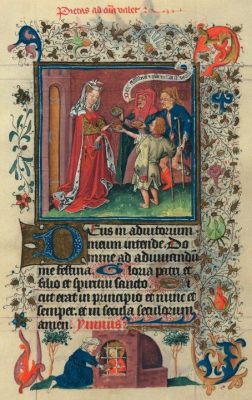 Pietas ad valet
Deus in adiutorium
meum intende Do
mine ad adiuuandu
me festina Gloria patri et
filio et spiritui sancto Si
cut erat in principio et nunc et
semper et in secula seculorum
amen. Ymnus